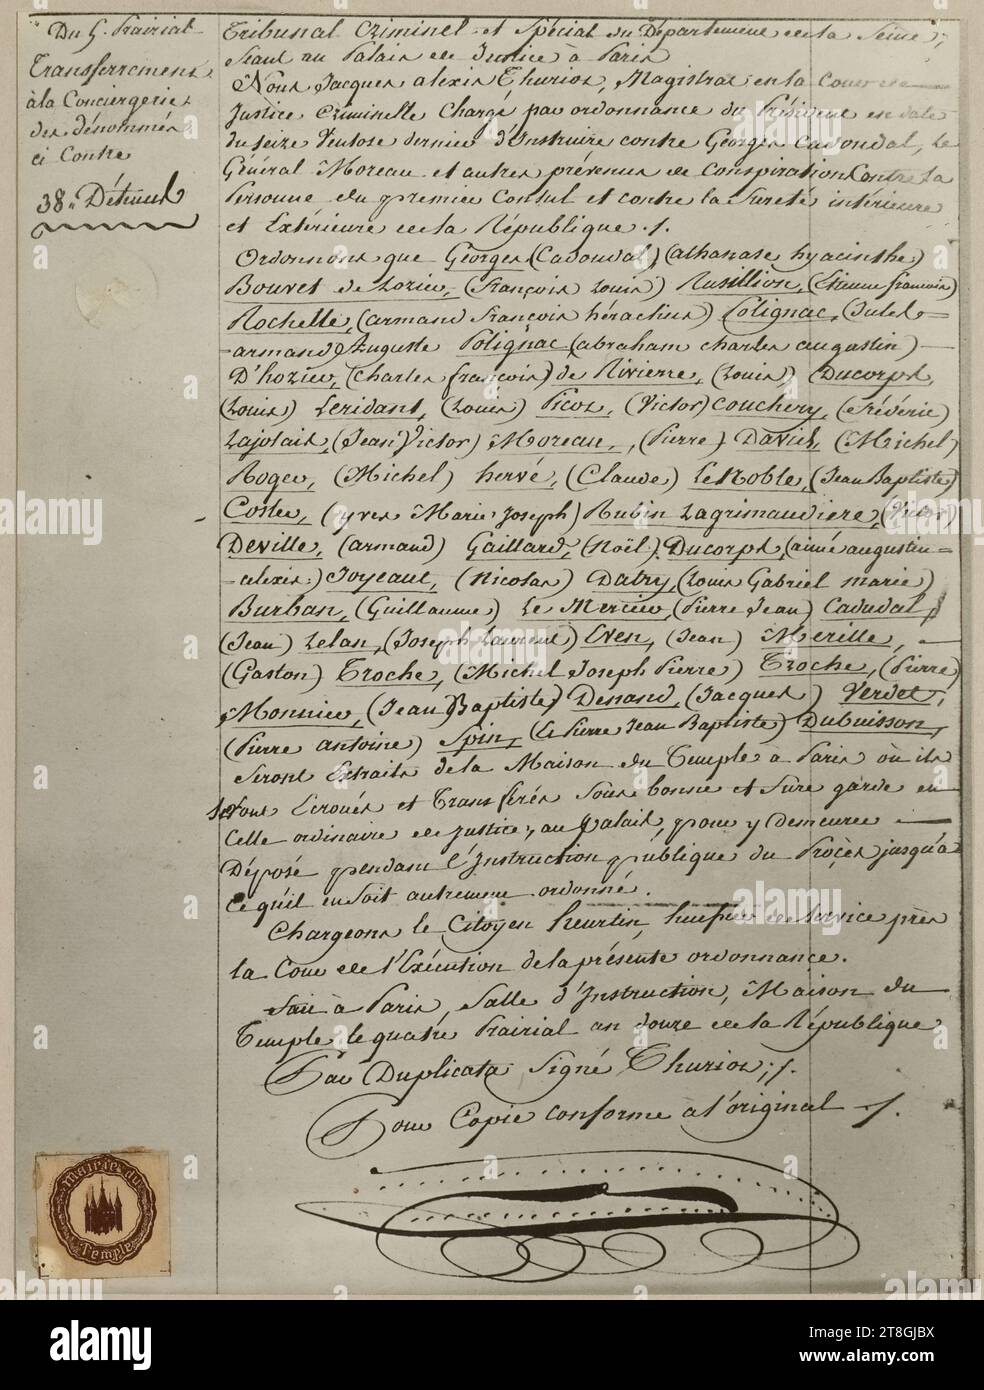 Du 5. Prairial
Transferrement
à la Conciergerie
des dénommés
ci Contre
38 Détenus
Tribunal Criminel et Spécial du Département de la Seine,
Séant au Palais de Justice à Paris
Nous Jacques alexis Thuriot, Magistrat en la Cour de
Justice Criminelle Chargé par ordonnance du Président en date
du seize Ventose dernier d'Instruire contre Georges Cadoudal, le
Général Moreau et autres prévenus de Conspiration Contre la
Personne du premier Consul et contre la Sureté intérieure
et Extérieure de la République ./.
Ordonnons que Georges (Cadoudal) (athanase hyacinthe)
Bouvet de Lozier, (François Louis) Rusillion, (Etienne francois)
Rochelle, (armand François héraclius) Polignac, (Jules
armand) Auguste Polignac (abraham charles augustin)
D'hozier, (Charles françois) de Rivierre, (Louis) Ducorps,
(Louis) Leridant, (Louis) Picot, (Victor) Couchery, (Fréderic)
Lajolais, (Jean Victor) Moreau, (Pierre) David, (Michel)
Roger, (Michel) hervé, (Claude) Le Noble, (Jean Baptiste)
Coster, (yves Marie Joseph) Rubin Lagrimaudiere, (Victor)
Deville, (armand) Gaillard, (Noël) Ducorps, (aimé augustin
alexis) Joyeaut, (Nicolas) Datry, (Louis Gabriel marie)
Burban, (Guillaume) Le Mercier, (Pierre Jean) Cadudal,
(Jean) Lelan, (Joseph Laurent) Even, (Jean) Merille,
(Gaston) Troche, (Michel Joseph Pierre) Troche, (Pierre)
Monnier, (Jean Baptiste) Denand, (Jacques) Verdet,
(Pierre antoine) Spin, (& Pierre Jean Baptiste) Dubuisson,
Seront Extraits de la Maison du Temple à Paris où ils
Sont Ecroués et Transférés Sous bonne et Sure garde en
Celle ordinaire de Justice, au Palais, pour y Demeurer
Déposé pendant l'Instruction publique du Procès jusqu'à
Ce qu'il en Soit autrement ordonné.
Chargeons le Citoyen heurtin, huissier de Service près
la Cour de l'Exécution de la présente ordonnance.
Fait à Paris, Salle d'Instruction, Maison du
Temple le quatre Prairial an douze de la République
Par Duplicata Signé Thuriot ;/.
Pour Copie conforme a l'original ./.
Mairie du
Temple
alamy
www.alamy.com
Image ID: 2T8GJBX